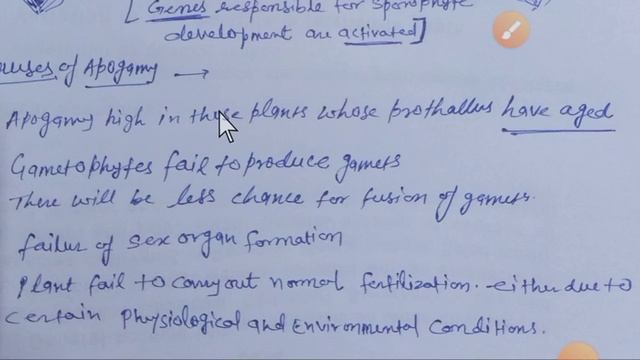 [Genes responsible for sporophyte
development are activated]
auses of Apogamy →
Apogamy high in those plants whose prothallus have aged
Gametophytes fail to produce gamets
There will be less chance for fusion of gamets.
failur of sex organ formation
Plant fail to carryout normal fertilization. either due to
certain Physiological and Environmental Conditions.